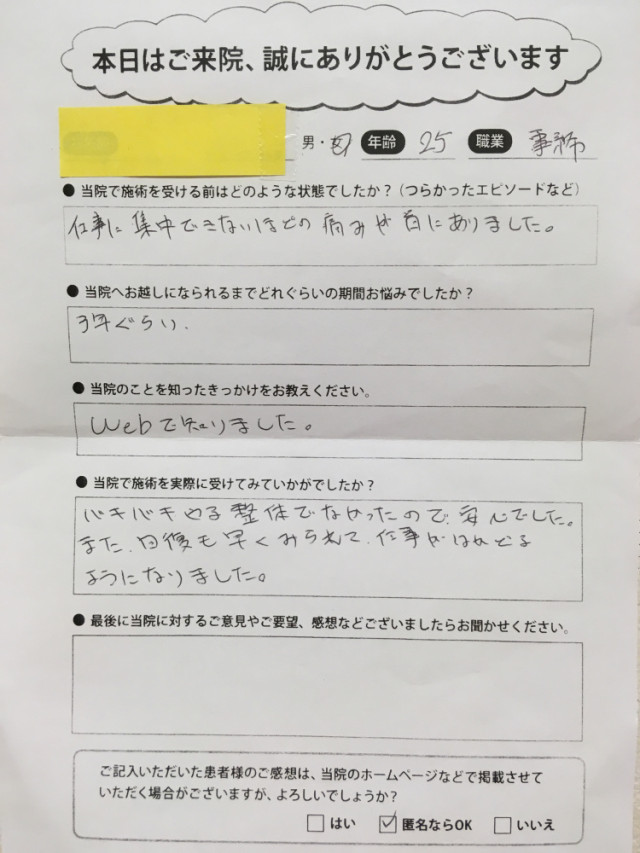 本日はご来院、誠にありがとうございます
男・女 年齢 25 職業 事務
● 当院で施術を受ける前はどのような状態でしたか？（つらかったエピソードなど）
仕事に集中できないほどの痛みが首にありました。
● 当院へお越しになられるまでどれぐらいの期間お悩みでしたか？
3年ぐらい.
● 当院のことを知ったきっかけをお教えください。
Webで知りました。
● 当院で施術を実際に受けてみていかがでしたか？
バキバキやる整体でなかったので、安心でした。
また、回復も早くみられて、仕事がはかどる
ようになりました。
● 最後に当院に対するご意見やご要望、感想などございましたらお聞かせください。
ご記入いただいた患者様のご感想は、当院のホームページなどで掲載させて
いただく場合がございますが、よろしいでしょうか？
□ はい ☑ 匿名ならOK □ いいえ